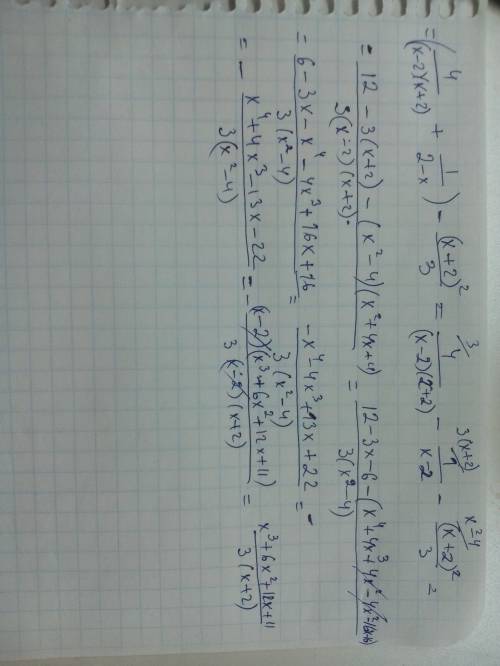 = (4/((x-2)(x+2)) + 1/(2-x)) - (x+2)²/3 = 4/((x-2)(x+2)) ^3 - 1/(x-2) ^3(x+2) - (x+2)²/3 ^x²-4 =
= (12 - 3(x+2) - (x²-4)(x²+4x+4))/(3(x-2)(x+2)) = (12-3x-6-(x⁴+4x³+4x²-4x²-16x-16))/(3(x²-4))
= (6-3x-x⁴-4x³+16x+16)/(3(x²-4)) = (-x⁴-4x³+13x+22)/(3(x²-4)) = -
= - (x⁴+4x³-13x-22)/(3(x²-4)) = - ((x-2)(x³+6x²+12x+11))/(3(x-2)(x+2)) = (x³+6x²+12x+11)/(3(x+2))